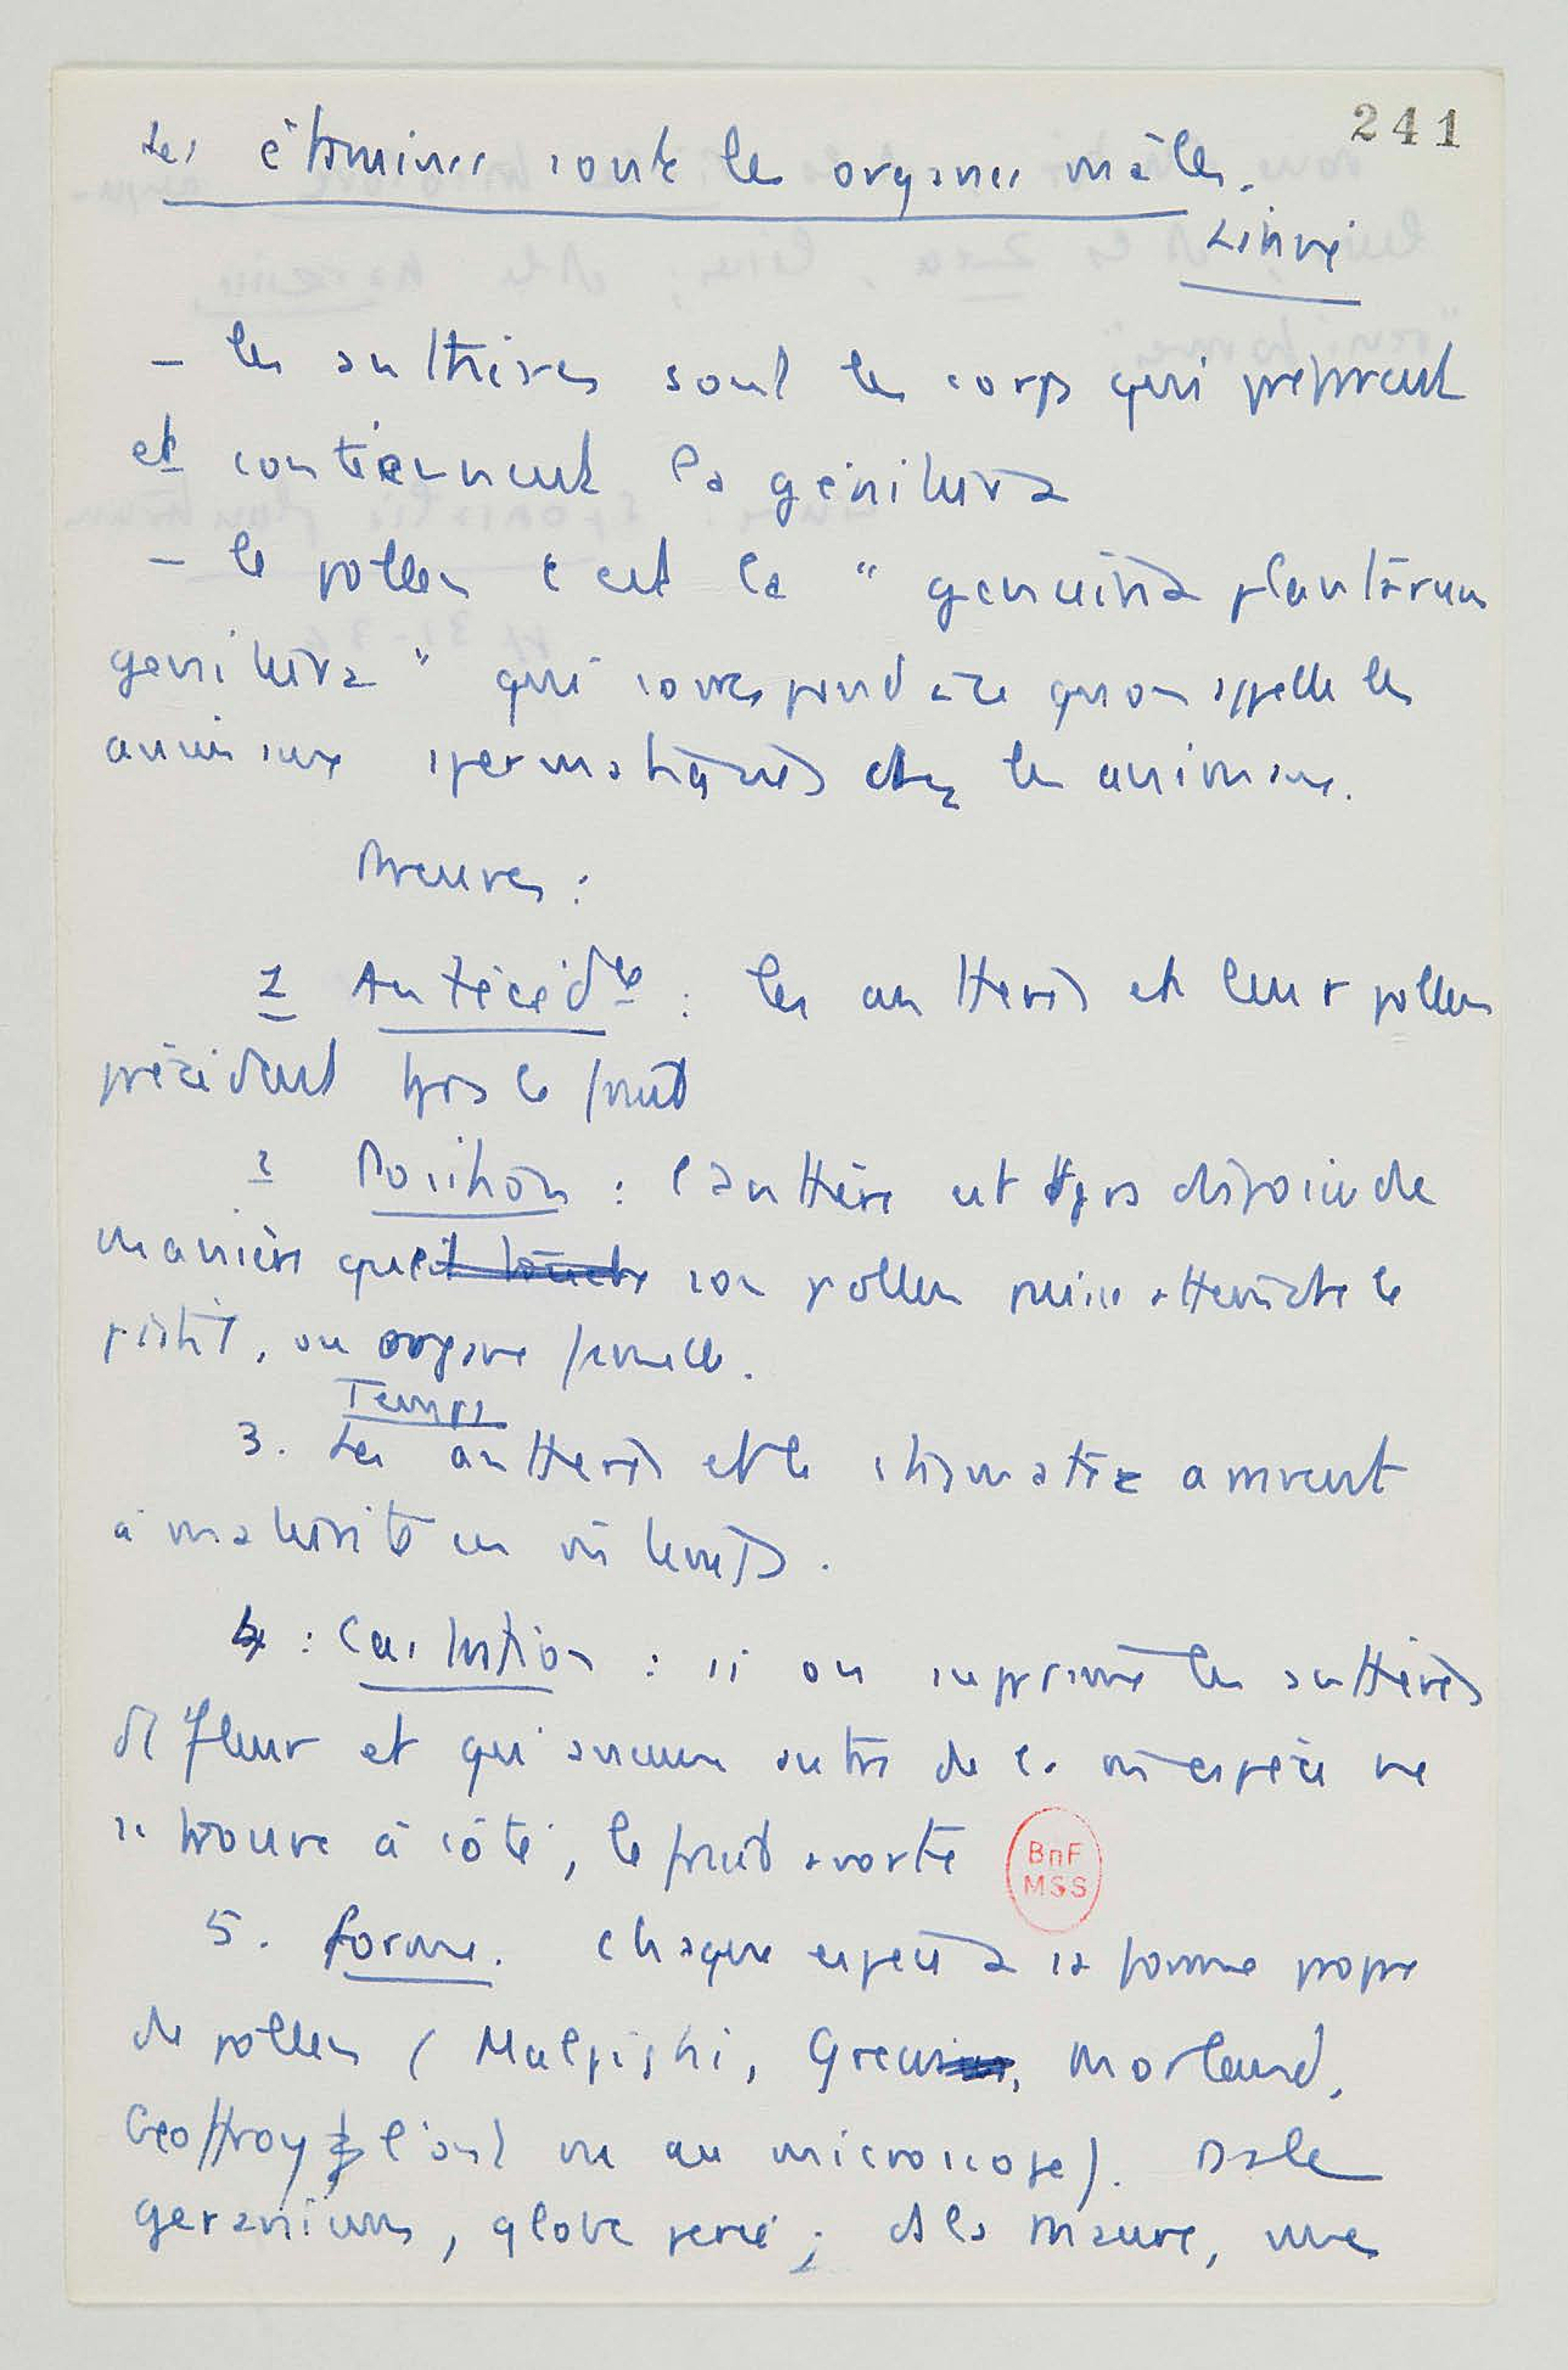 241
Les étamines sont les organes mâles.
Linné
– les anthères sont les corps qui préparent
et contiennent la genitura
– le pollen c'est la " genuina plantarum
genitura " qui correspond à ce qu'on appelle les
animaux spermatiques chez les animaux.
Preuves :
1 Antécédce : les anthères et leur pollen
précèdent tjrs le fruit
2 Position : l'anthère est tjrs disposée de
manière que son pollen puisse atteindre le
pistil, ou organe femelle.
Temps
3. Les anthères et le stigmate arrivent
à maturité en m̂ temps.
4 : Castration : si on supprime les anthères
d'1 fleur et qu'aucune autre de la m̂ espèce ne
se trouve à côté, le fruit avorte
BnF
MSS
5. Forme. Chaque espèce a sa forme propre
de pollen ( Malpighi, Grew, Morland,
Geoffroy l'ont vu au microscope). Ds le
geranium, globe percé ; ds la mauve, une